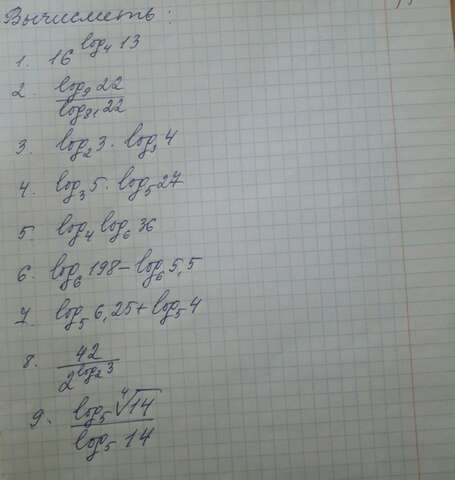 Вычислить:
1. 16^(log₄ 13)
2. log₉ 22 / log₈₁ 22
3. log₂ 3 · log₃ 4
4. log₃ 5 · log₅ 27
5. log₄ log₆ 36
6. log₆ 198 – log₆ 5,5
7. log₅ 6,25 + log₅ 4
8. 42 / 2^(log₂ 3)
9. log₅ ⁴√14 / log₅ 14